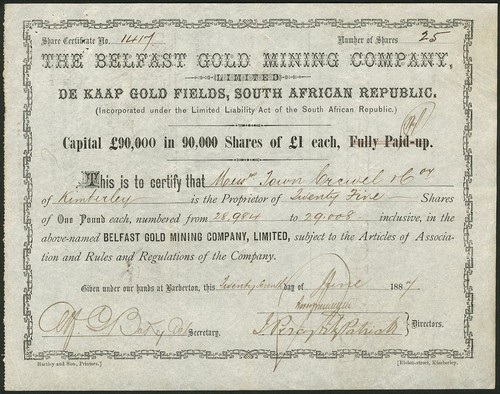 Share Certificate No. 1417 Number of Shares 25
THE BELFAST GOLD MINING COMPANY,
LIMITED
DE KAAP GOLD FIELDS, SOUTH AFRICAN REPUBLIC.
(Incorporated under the Limited Liability Act of the South African Republic.)
Capital £90,000 in 90,000 Shares of £1 each, Fully Paid-up.
This is to certify that Town &
of Kimberley is the Proprietor of Twenty Five Shares
of One Pound each, numbered from 28,984 to 29,008 inclusive, in the
above-named BELFAST GOLD MINING COMPANY, LIMITED, subject to the Articles of Associa-
tion and Rules and Regulations of the Company.
Given under our hands at Barberton, this day of June 1887.
Secretary. Directors.
Hartley and Son, Printers.] [Elsion-street, Kimberley.